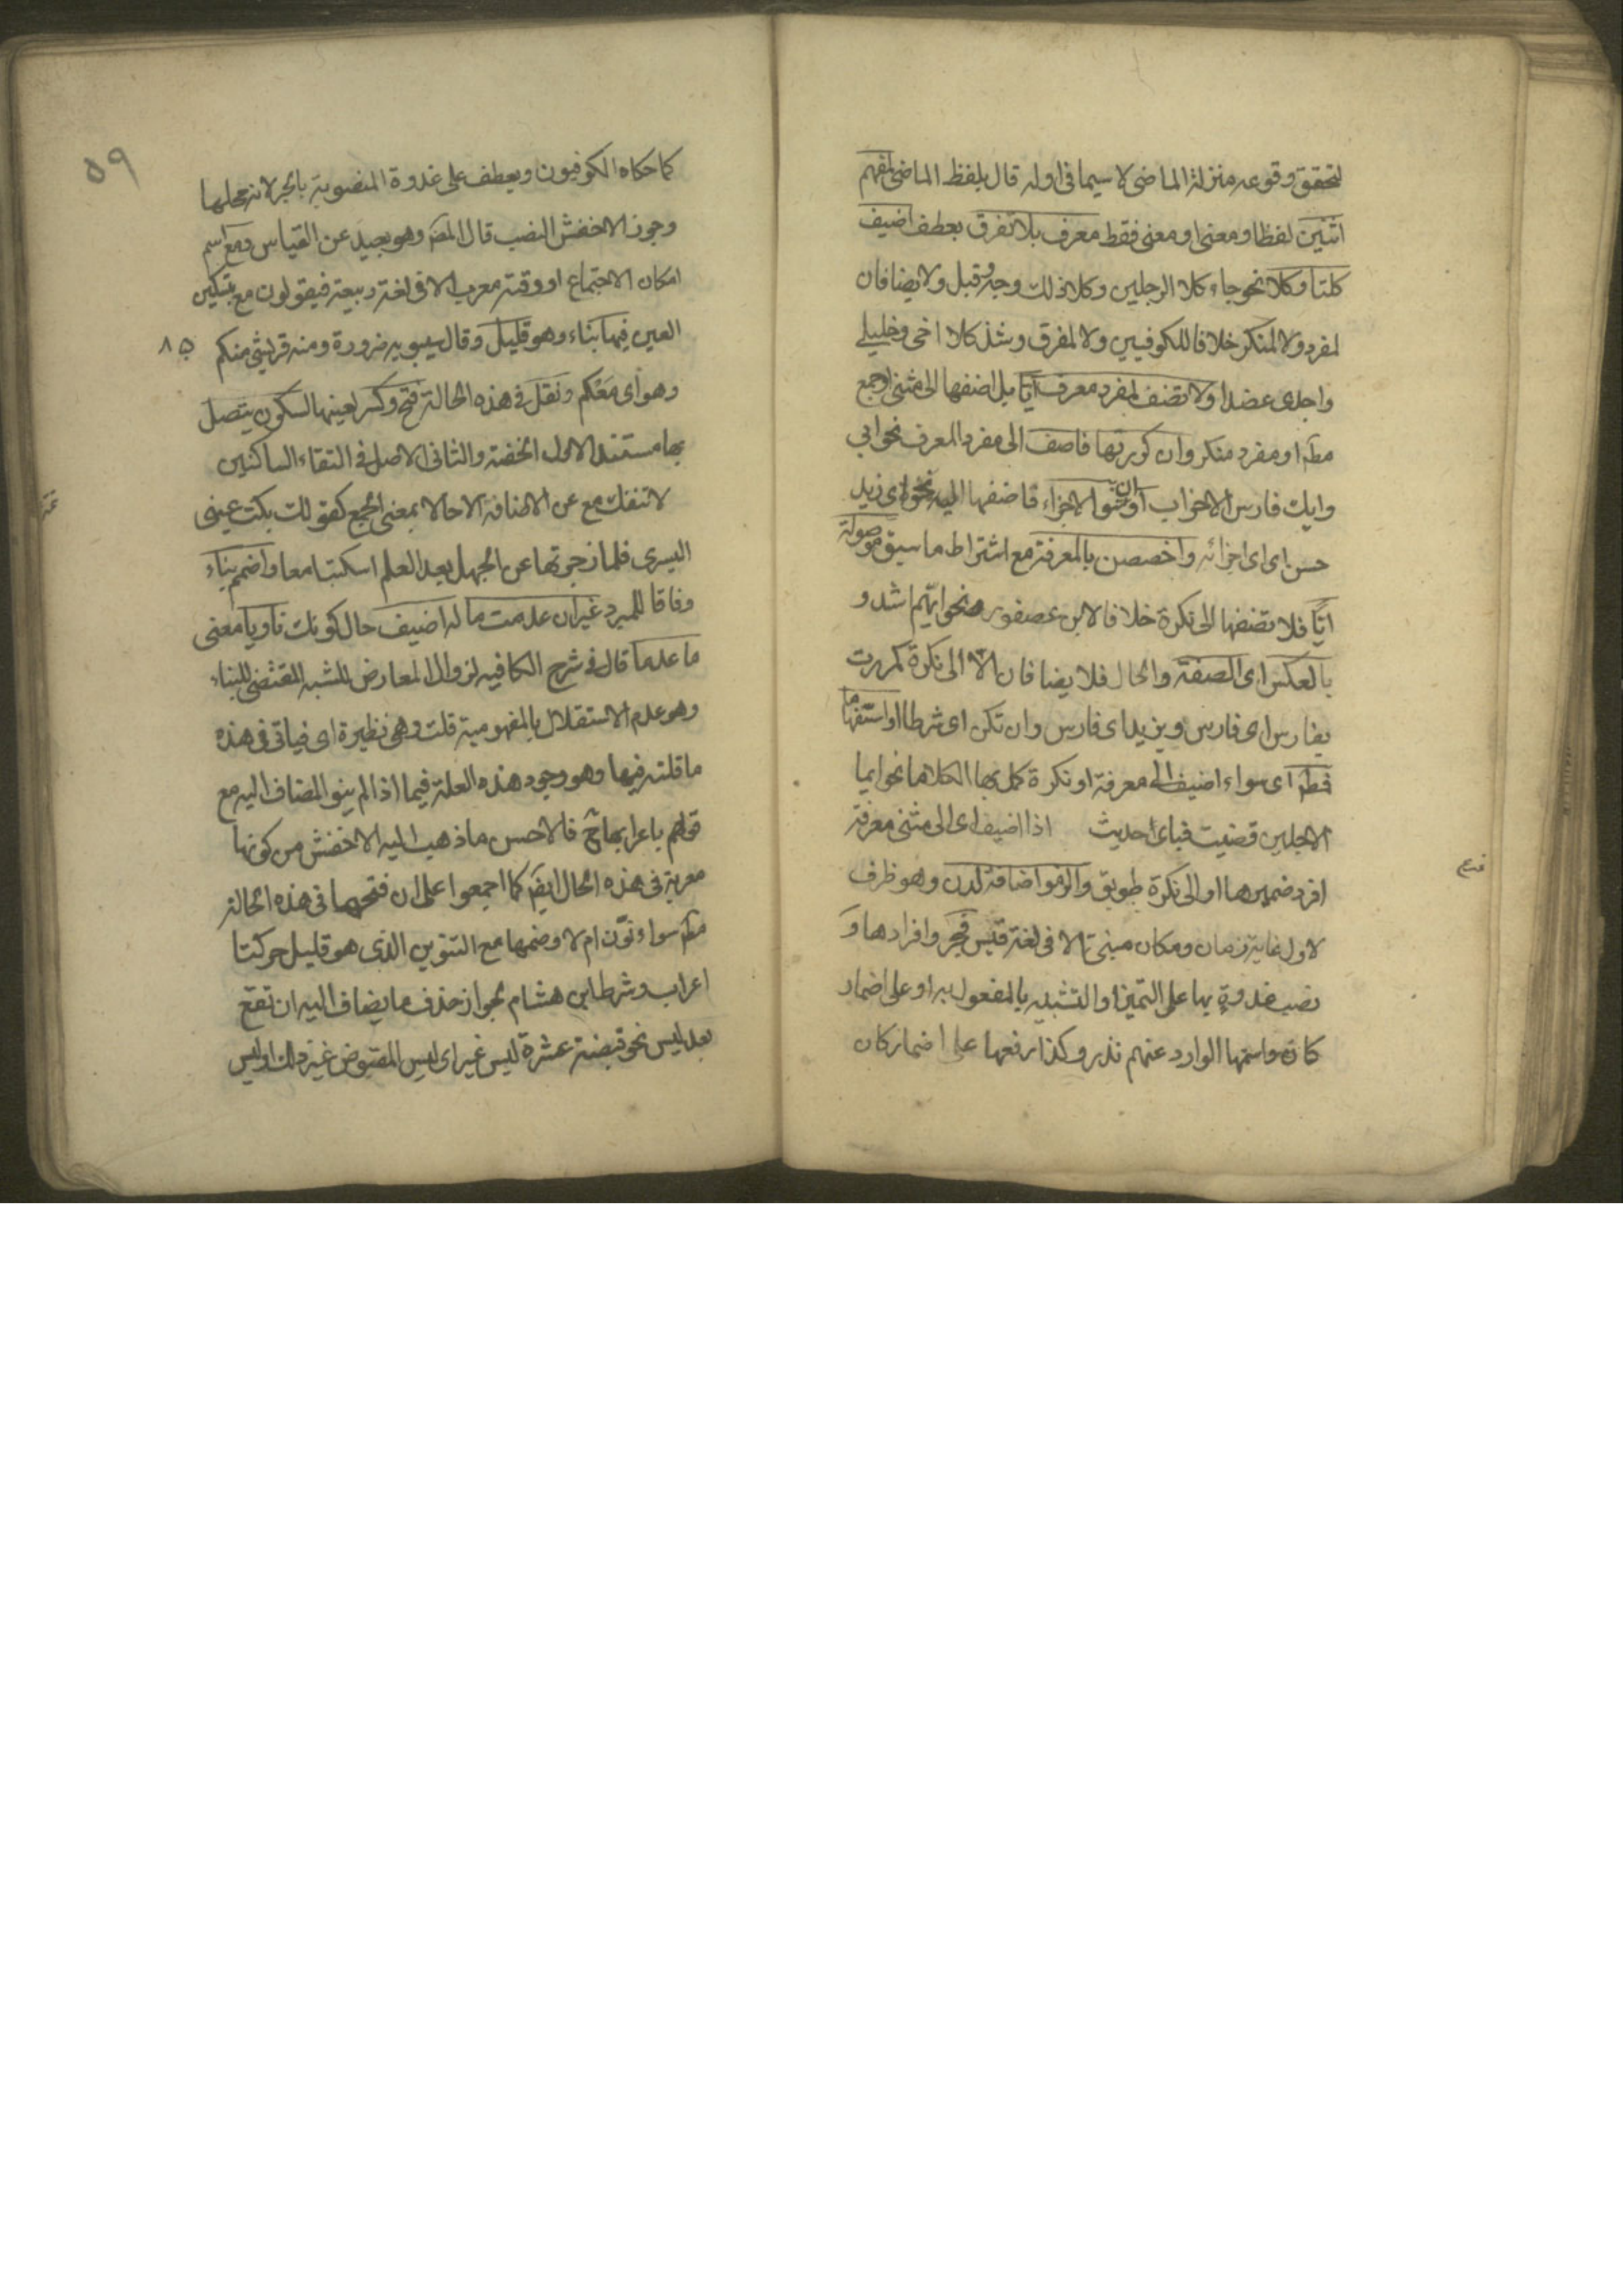 لتحقق وقوعه منزلة الماضى لا سيما فى اوله قال بلفظ الماضى لمفهم
اثنين لفظا ومعنى او معنى فقط معرف بلا تفرق بعطف اضيف
كلتا وكلا نحو جاء كلا الرجلين وكلا ذلك وجه وقبل ولا يضافان
لمفرد ولا لمنكر خلافا للكوفيين ولا لمفرق وشذ كلا اخى وخليلى
واجدى عضدا ولا تضف لمفرد معرف ايا بل اضفها الى مثنى او جمع
مط او مفرد منكر وان كررتها فاضف الى مفرد المعرف نحو ايى
وايك فارس الاحزاب او ان تنو الاجزاء فاضفها اليه نحو اى زيد
حسن اى اى اجزائه واخصصن بالمعرفة مع اشتراط ما سبق موصولة
ايا فلا تضفها الى نكرة خلافا لابن عصفور نحو ايهم اشد و
بالعكس اى الصفة والحال فلا يضافان الا الى نكرة كمررت
بفارس اى فارس وبزيد اى فارس وان تكن اى شرطا او استفهاما
فمط اى سواء اضيف الى معرفة او نكرة كمل بها الكلاما نحو ايما
الاجلين قضيت فباى حديث اذا اضيف اى الى مثنى معرفة
افرد ضميرها او الى نكرة طوبق والزموا اضافة لدن وهو ظرف
لاول غاية زمان ومكان مبنى الا فى لغة قيس فجر وافرادها و
نصب غدوة بها على التميز او التشبيه بالمفعول به او على اضمار
كان واسمها الوارد عنهم ندر وكذا رفعها على اضمار كان
٥٩
كما حكاه الكوفيون ويعطف على غدوة المنصوبة بالجر لانه محلها
وجوز الاخفش النصب قال المص وهو بعيد عن القياس ومع اسم
امكان الاجتماع او وقته معرب الا فى لغة ربيعة فيقولون مع بتسكين
العين فيها بناء وهو قليل وقال سيبويه ضرورة ومنه قريشى منكم
٨٥
وهواى معكم ونقل فى هذه الحالة فتح وكسر لعينها لسكون يتصل
بها مستند الاول الخفة والثانى الاصل فى التقاء الساكنين
لا تنفك مع عن الاضافة الا حالا بمعنى الجميع كقولك بكت عينى
اليسرى فلما زجرتها عن الجهل بعد العلم اسكبتا معا واضمم بناء
وفاقا للمبرد غيرا ان عدمت ما له اضيف حال كونك ناويا معنى
ما عدما قال فى شرح الكافيه لزوال المعارض للشبه المقتضى للبناء
وهو عدم الاستقلال بالمفهومية قلت وهى نظيرة اى فياتى فى هذه
ما قلته فيها وهو وجود هذه العلة فيما اذا لم ينو المضاف اليه مع
قولهم باعرابها ح فالاحسن ما ذهب اليه الاخفش من كونها
معربة فى هذه الحال ايض كما اجمعوا على ان فتحها فى هذه الحالة
مط سواء نون ام لا وضمها مع التنوين الذى هو قليل حركتا
اعراب وشرط ابن هشام لجواز حذف ما يضاف اليه ان تقع
بعد ليس نحو قبضة عشرة ليس غير اى ليس المقبوض غير ذلك او ليس